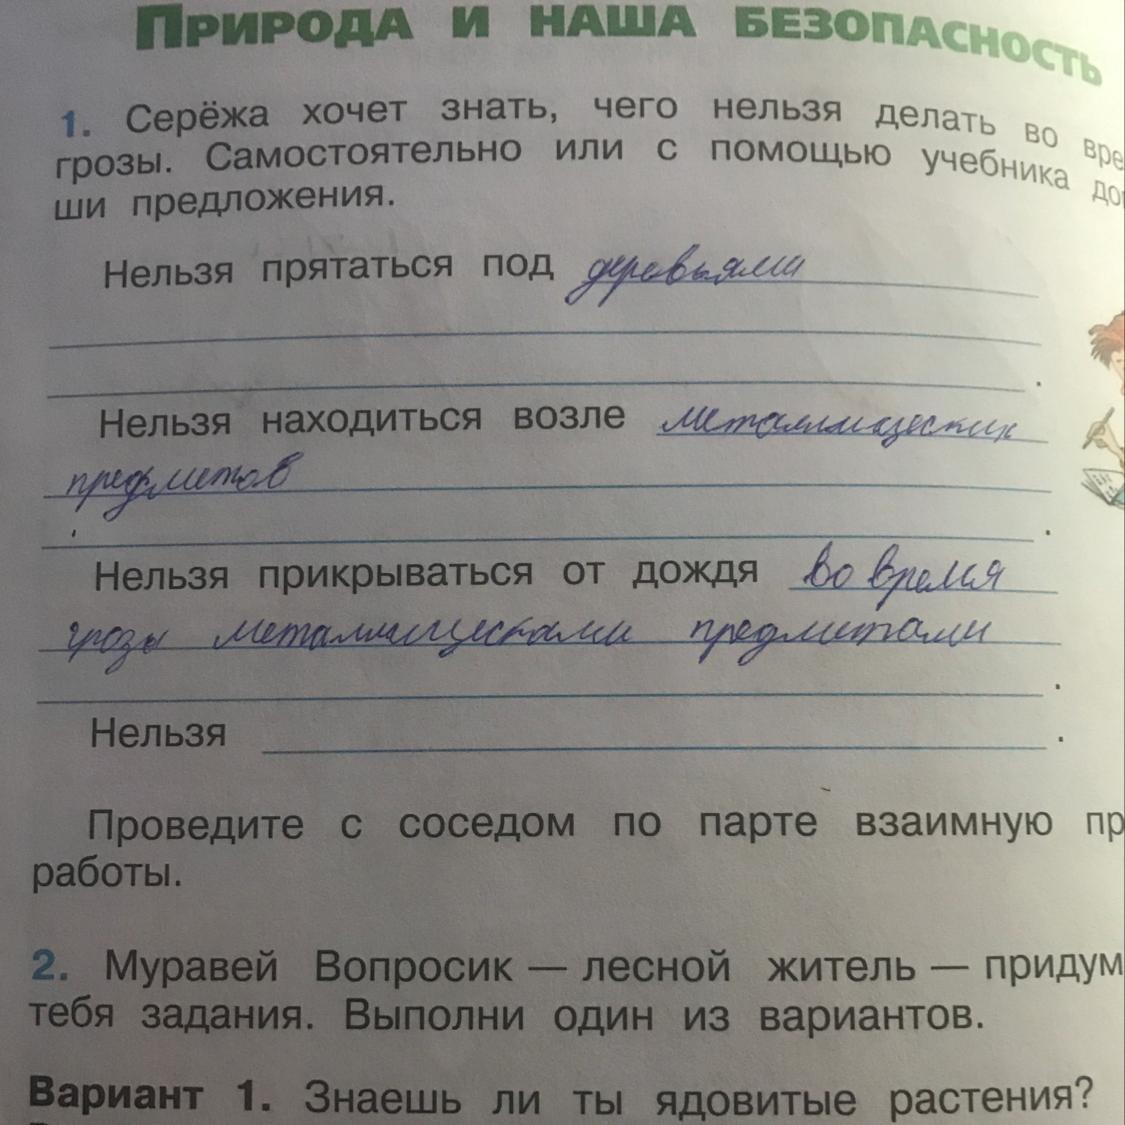 ПРИРОДА И НАША БЕЗОПАСНОСТЬ
1. Серёжа хочет знать, чего нельзя делать во вре
грозы. Самостоятельно или с помощью учебника доп
ши предложения.
Нельзя прятаться под деревьями
.
Нельзя находиться возле металлических
предметов
.
Нельзя прикрываться от дождя во время
грозы металлическими предметами
.
Нельзя .
Проведите с соседом по парте взаимную пр
работы.
2. Муравей Вопросик — лесной житель — придум
тебя задания. Выполни один из вариантов.
Вариант 1. Знаешь ли ты ядовитые растения?